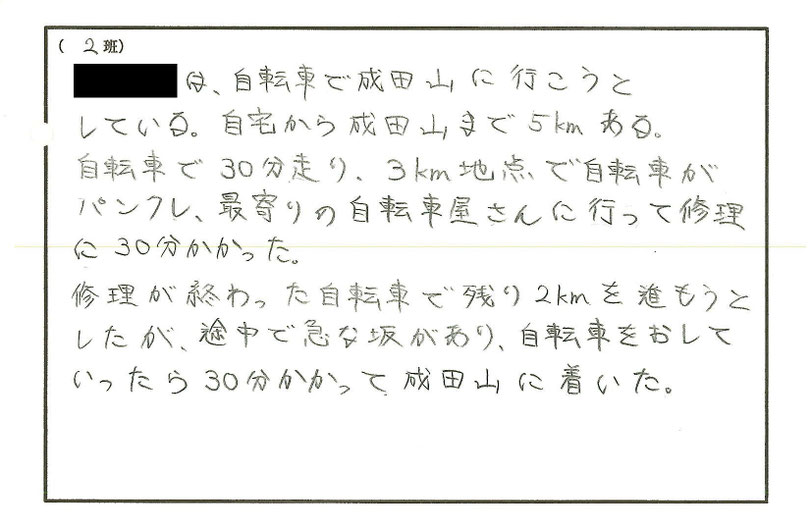 ( 2班)
は、自転車で成田山に行こうと
している。自宅から成田山まで5kmある。
自転車で30分走り、3km地点で自転車が
パンクし、最寄りの自転車屋さんに行って修理
に30分かかった。
修理が終わった自転車で残り2kmを進もうと
したが、途中で急な坂があり、自転車をおして
いったら30分かかって成田山に着いた。